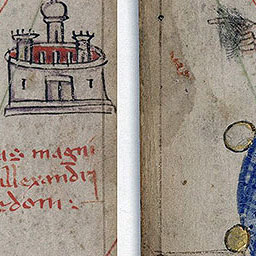 us magni
allexandri
edoni